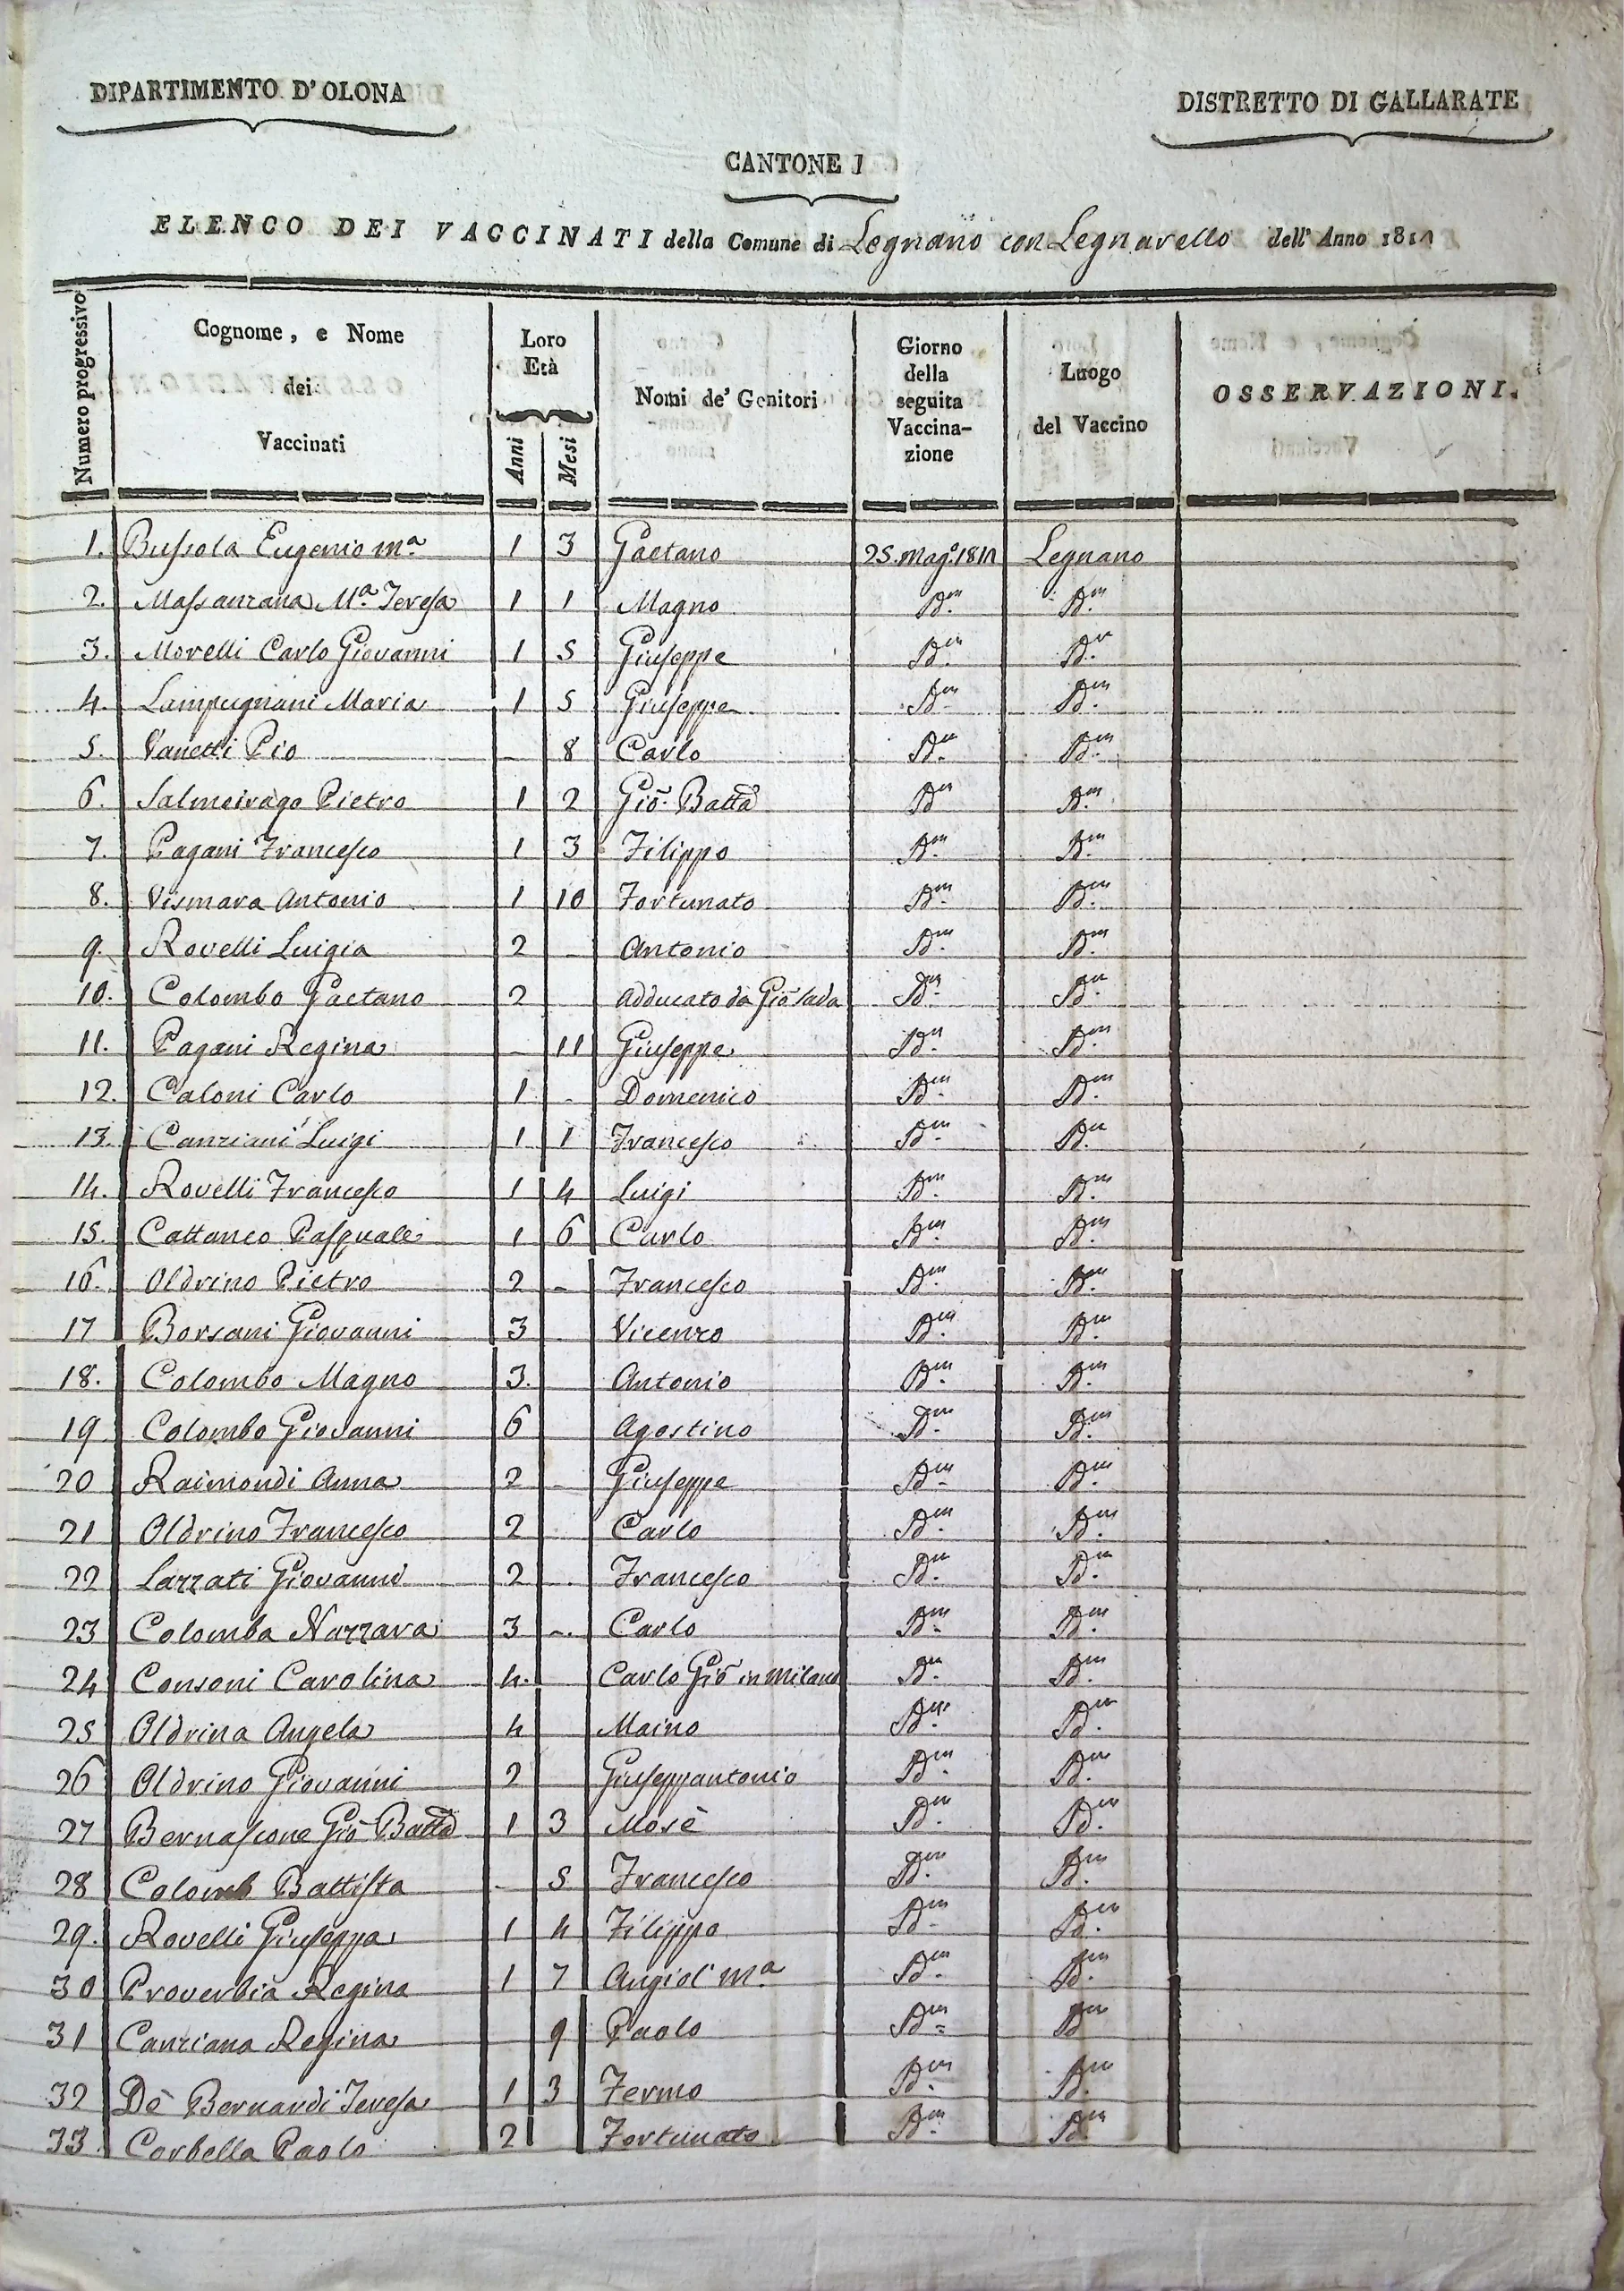 DIPARTIMENTO D'OLONA
DISTRETTO DI GALLARATE
CANTONE I
ELENCO DEI VACCINATI della Comune di Legnano con Legnarello dell' Anno 1810
Numero progressivo
Cognome, e Nome dei Vaccinati
Loro Età
Anni
Mesi
Nomi de' Genitori
Giorno della seguita Vaccina-zione
Luogo del Vaccino
OSSERVAZIONI.
1. Bussola Eugenio Mª 1 3 Gaetano 25. Magº. 1810 Legnano
2. Massanzana Mª. Teresa 1 1 Magno Dm. Dm.
3. Morelli Carlo Giovanni 1 5 Giuseppe Dm. Dm.
4. Lampugnani Maria 1 5 Giuseppe Dm. Dm.
5. Vanetti Pio - 8 Carlo Dm. Dm.
6. Salmeirago Pietro 1 2 Gio. Batta Dm Dm.
7. Pagani Francesco 1 3 Filippo Dm. Dm.
8. Vismara Antonio 1 10 Fortunato Dm. Dm.
9. Rovelli Luigia 2 - Antonio Dm. Dm.
10. Colombo Gaetano 2 Adducato da Gio Sada Dm. Dm.
11. Pagani Regina - 11 Giuseppe Dm. Dm.
12. Caloni Carlo 1 - Domenico Dm. Dm.
13. Canziani Luigi 1 1 Francesco Dm. Dm.
14. Rovelli Francesco 1 4 Luigi Dm. Dm.
15. Cattaneo Pasquale 1 6 Carlo Dm. Dm.
16. Oldrino Pietro 2 - Francesco Dm. Dm.
17 Borsani Giovanni 3 - Vicenzo Dm. Dm.
18. Colombo Magno 3. Antonio Dm. Dm.
19 Colombo Giovanni 6 Agostino Dm. Dm.
20 Raimondi Anna 2 - Giuseppe Dm. Dm.
21 Oldrino Francesco 2 Carlo Dm. Dm.
22 Lazzati Giovanni 2 - Francesco Dm. Dm.
23 Colomba Nazzara 3 - Carlo Dm. Dm.
24 Consoni Carolina 4. Carlo Gio in Milano Dm. Dm.
25 Oldrina Angela 4 Maino Dm. Dm.
26 Oldrino Giovanni 2 Giuseppantonio Dm. Dm.
27 Bernascone Gio Batta 1 3 Mosè Dm. Dm.
28 Colomb Battista - 5 Francesco Dm. Dm.
29. Rovelli Giuseppa 1 4 Filippo Dm. Dm.
30 Proverbia Regina 1 7 Angiol Mª Dm. Dm.
31 Canziana Regina 9 Paolo Dm. Dm
32 Dè Bernardi Teresa 1 3 Fermo Dm. Dm.
33 Corbella Paolo 2 Fortunato Dm. Dm.